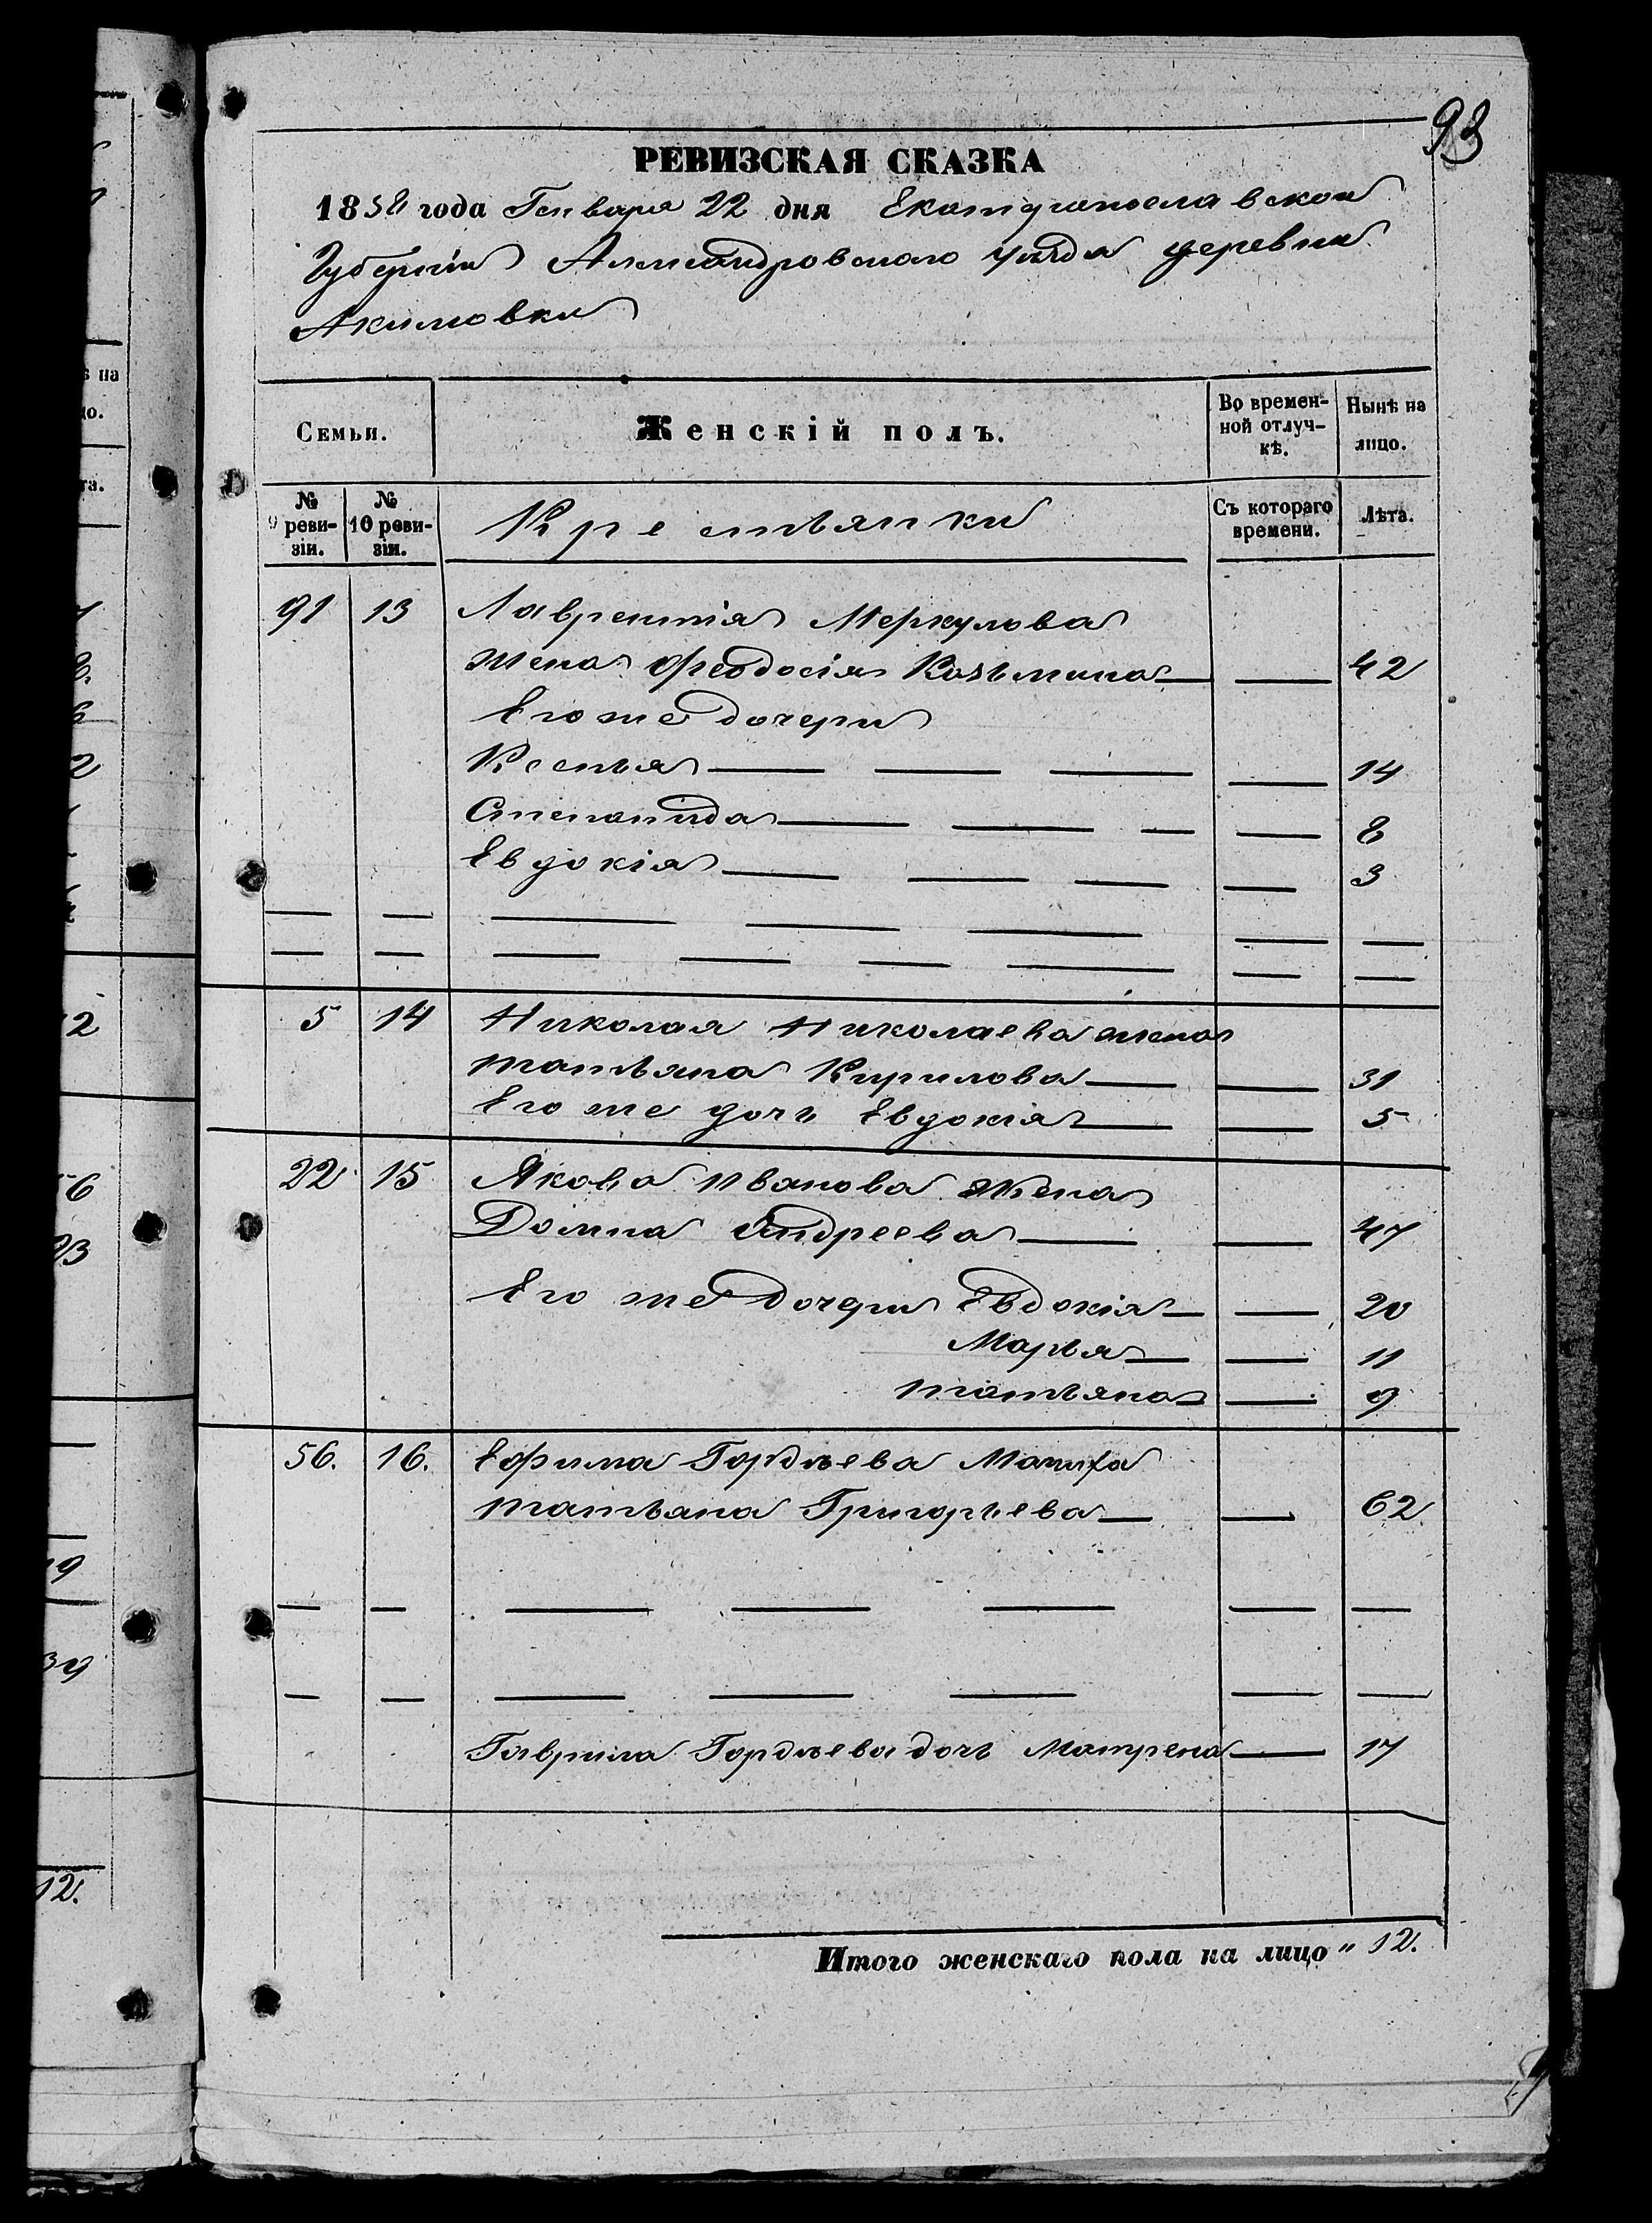 93
РЕВИЗСКАЯ СКАЗКА
1858 года Генваря 22 дня Екатериносла вской
Губерніи Александровскаго уѣзда деревни
Акимовки
Семьи. Женскій полъ. Во времен-ной отлуч-кѣ. Нынѣ на лицо.
№ 9 реви-зіи. № 10 реви-зіи. Крестьянки Съ котораго времени. Лѣта.
91 13 Лаврентія Меркулова
жена Феодосія Козьмина — — 42
Его же дочери
Ксенья — — — — 14
Степанида — — — — 8
Евдокія — — — — 3
— — — — — — —
— — — — — — — —
5 14 Николая Николаева жена
Татьяна Кирилова — — 31
Его же дочь Евдокія — — 5
22 15 Якова Иванова жена
Домна Андреева — — 47
Его же дочери Евдокія — — 20
Марья — — 11
Татьяна — — 9
56. 16. Ефима Гордѣева Мачиха
Татьяна Григорьева — — 62
— — — — — — —
— — — — — — —
Гаврила Гордѣева дочь Матрена — 17
Итого женскаго пола на лицо „ 12.